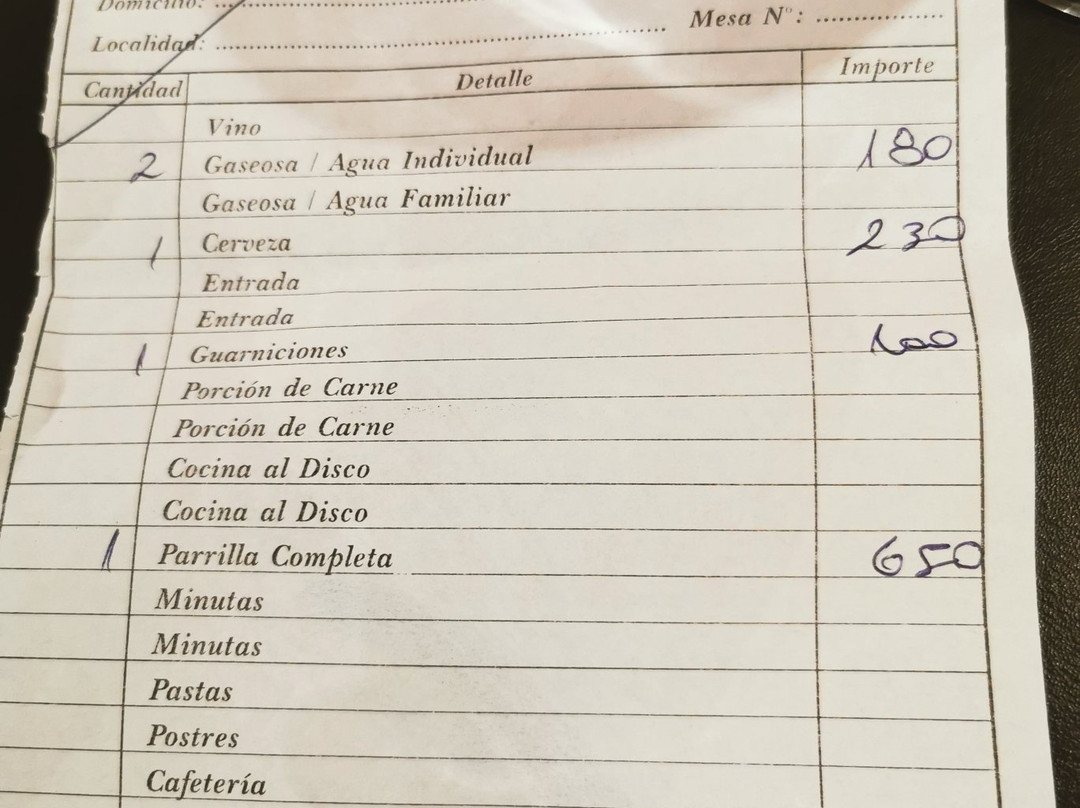 Domicilio: ..............................
Localidad: .................................................................. Mesa N°: ...................
Cantidad Detalle Importe
Vino
2 Gaseosa / Agua Individual 180
Gaseosa / Agua Familiar
1 Cerveza 230
Entrada
Entrada
1 Guarniciones 100
Porción de Carne
Porción de Carne
Cocina al Disco
Cocina al Disco
1 Parrilla Completa 650
Minutas
Minutas
Pastas
Postres
Cafetería